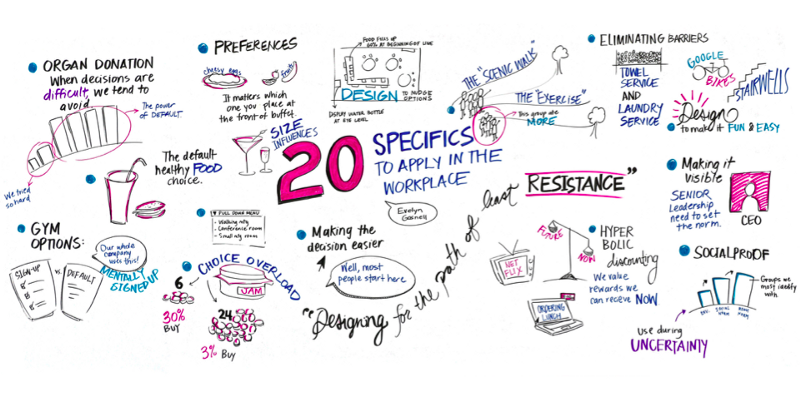 ORGAN DONATION
When decisions are
difficult, we tend to
avoid
The power
of DEFAULT
We tried
so hard
The default
healthy FOOD
choice.
GYM
OPTIONS:
Our whole
company
was this!
MENTALLY
SIGNED UP
SIGN-UP
vs.
DEFAULT
PREFERENCES
cheesy eggs
fruits
It matters which
one you place at
the front of buffet.
SIZE
INFLUENCES
FULL DOWN MENU
- Walking mtg
- Conference room
- Small mtg room
CHOICE OVERLOAD
JAM
6
30%
BUY
24
3% BUY
FOOD FILLS UP
60% AT BEGINNING OF LINE
DESIGN TO NUDGE
OPTIONS
DISPLAY WATER BOTTLE
AT EYE LEVEL
20 SPECIFICS
TO APPLY IN THE
WORKPLACE
Making the
decision easier
Well, most
people start here
"Designing for the path of least RESISTANCE"
THE "SCENIC WALK"
THE "EXERCISE"
This group ate
MORE
ELIMINATING BARRIERS
TOWEL
SERVICE
AND
LAUNDRY
SERVICE
GOOGLE
BIKES
STAIRWELLS
Design
to make it FUN & EASY
Making it
Visible
SENIOR
Leadership
need to set
the norm.
CEO
FUTURE
NOW
NETFLIX
ORDERING
LUNCH
HYPER
BOLIC
discounting
We value
rewards we
can receive NOW
SOCIAL PROOF
Groups we
most identify
with
use during
UNCERTAINTY